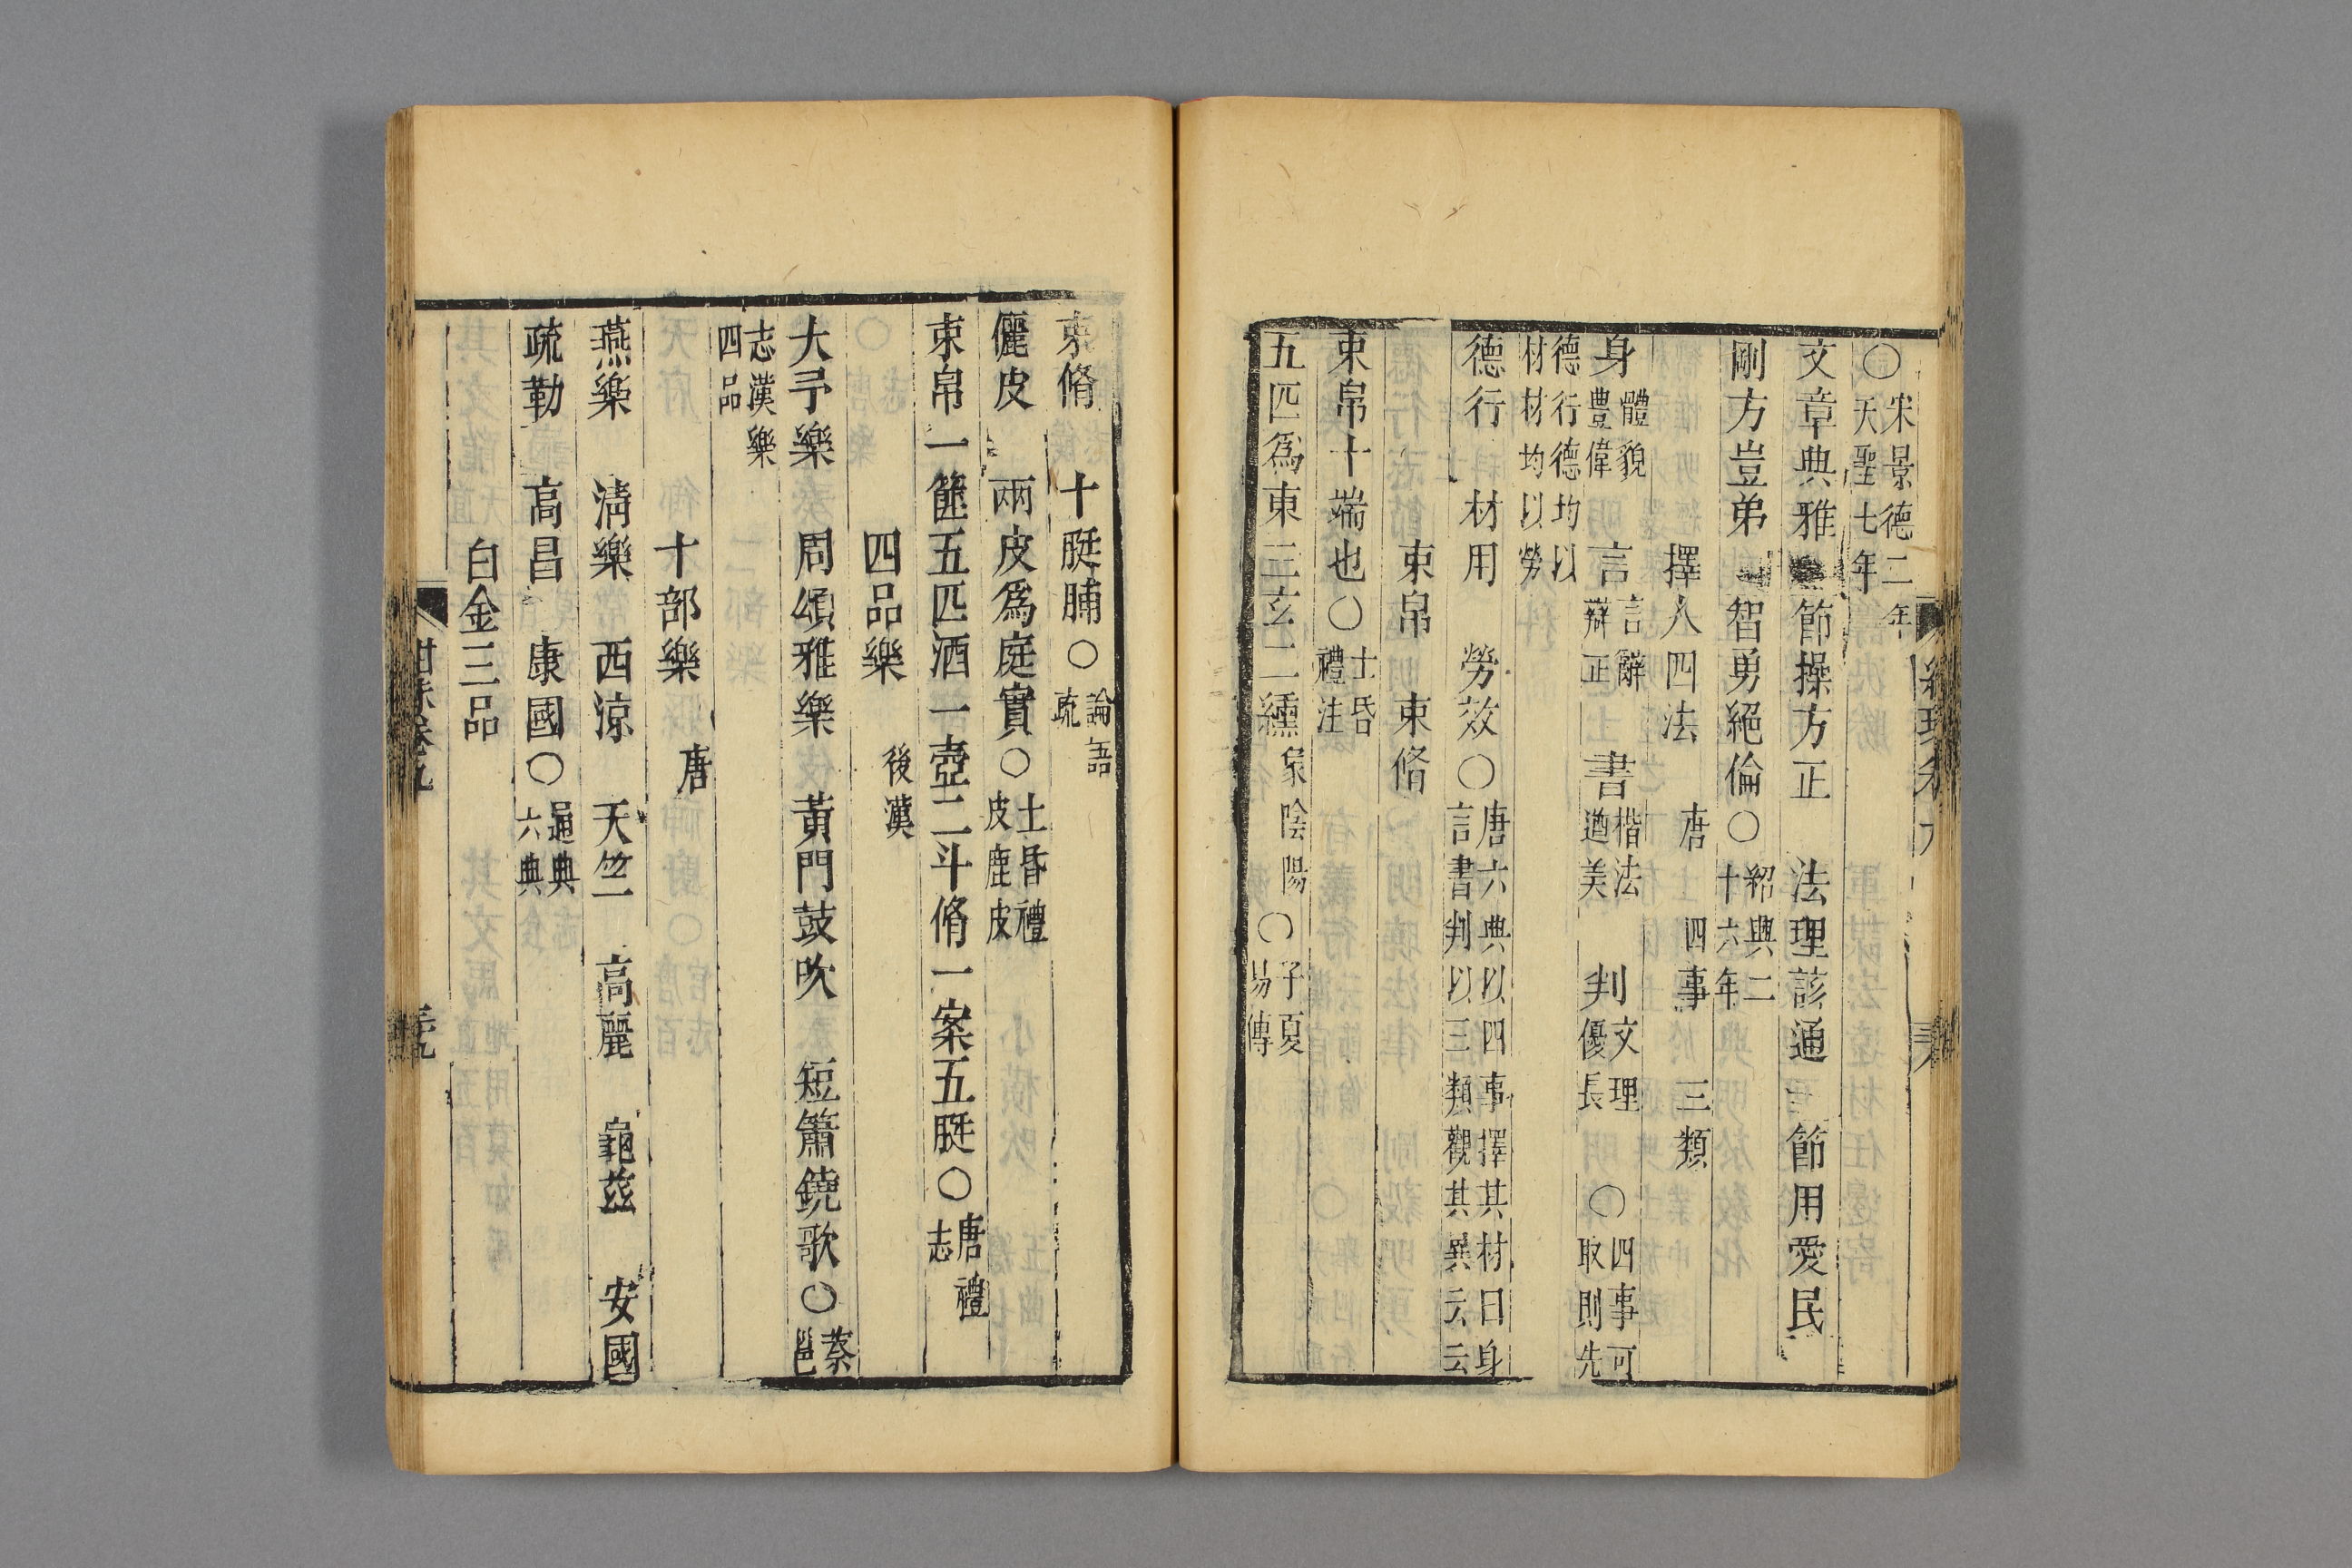 ○宋景德二年天聖七年
文章典雅　節操方正　法理該通　節用愛民
剛方豈弟　智勇絕倫○紹興二十六年
擇人四法　唐　四事　三類
身體貌豐偉　言言辭辯正　書楷法遒美　判文理優長　○四事可取則先
德行德均以材材均以勞
德行　材用　勞效○唐六典以四事擇其材曰身言書判以三類觀其異云云
束帛　束脩
束帛十端也○士昏禮注
五匹爲束三玄二纁象陰陽○子夏易傳
束脩　十脡脯○論語疏
儷皮　兩皮爲庭實○士昏禮皮鹿皮
束帛一篚五匹酒一壺二斗脩一案五脡○唐禮志
四品樂　後漢
大予樂　周頌雅樂　黃門鼓吹　短簫鐃歌○蔡邕
志漢樂四品
十部樂　唐
燕樂　淸樂　西涼　天竺　高麗　龜茲　安國
疏勒　高昌　康國○通典六典
白金三品